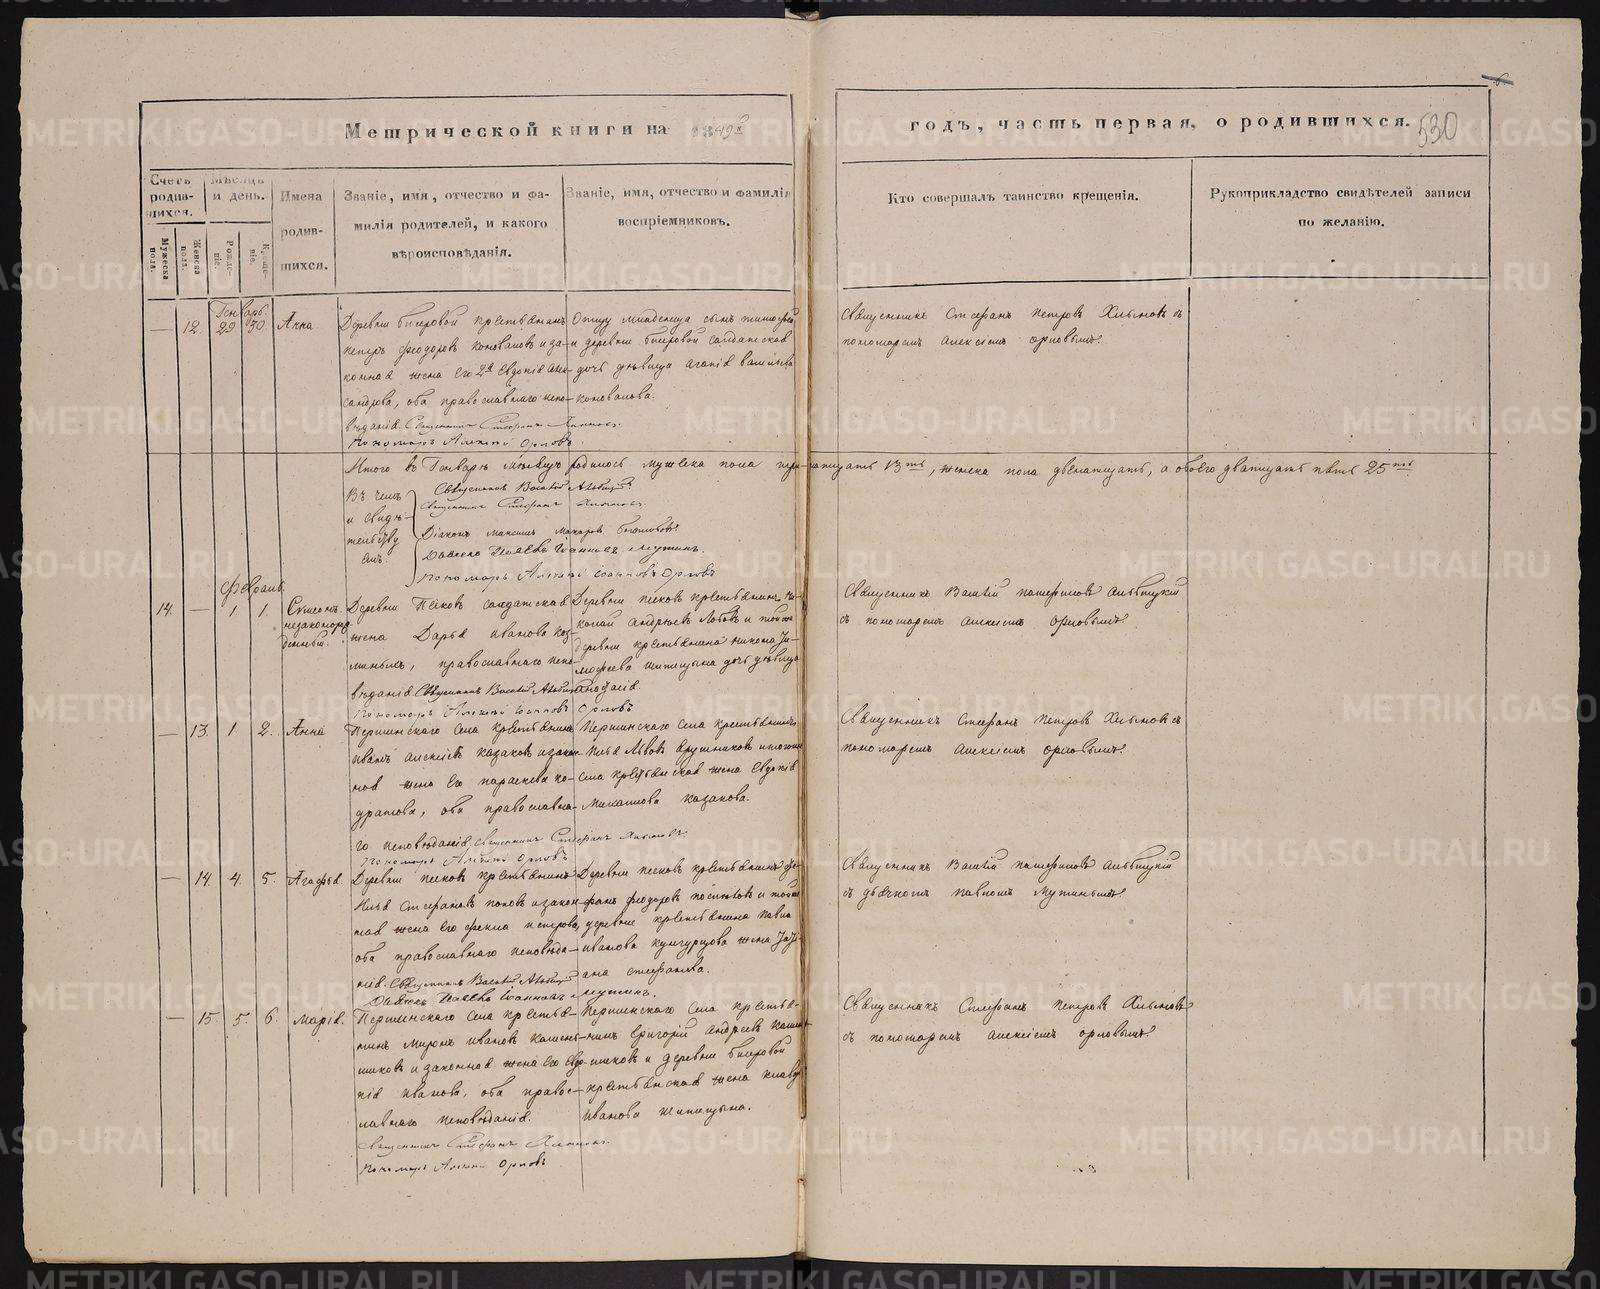 Метрической книги на 1849й
годъ, часть первая, о родившихся.
530
Счетъ родив-шихся.
Мужеска пола.
Женска пола.
Мѣсяцъ и день.
Рожде-ніе.
Креще-ніе.
Имена
родив-
шихся.
Званіе, имя, отчество и фа-
милія родителей, и какого
вѣроисповѣданія.
Званіе, имя, отчество и фамилія
воспріемниковъ.
Кто совершалъ таинство крещенія.
Рукоприкладство свидѣтелей записи
по желанію.
Генварь
— 12. 29 30 Анна
Деревни Бисеровой крестьянинъ
Петръ Феодоровъ Коноваловъ и за-
конная жена его 2я Евдокія Алек-
сандрова, оба православнаго испо-
вѣданія. Священникъ Стефанъ Хлыновъ.
Пономарь Алексій Орловъ.
Отцу младенца сынъ Тимофей
и деревни Бисеровой солдатская
дочь дѣвица Агапія Васильева
Коновалова.
Священникъ Стефанъ Петровъ Хлыновъ съ
пономаремъ Алексіемъ Орловымъ.
Итого въ Генварѣ мѣсяцѣ родилось мужеска пола тринатцать 13ть, женска пола двенатцать, а обоего дватцать пять 25ть
Въ чемъ
и свидѣ-
тельству
емъ
Священникъ Василій
Священникъ Стефанъ Хлыновъ.
Діаконъ Максимъ Макаровъ
Дьячекъ Павелъ Іоанновъ Мутинъ.
Пономарь Алексій Іоанновъ Орловъ
Февраль
14. — 1 1. Симеонъ
незаконоро
жденный.
Деревни Песковъ солдатская
жена Дарья Иванова Коз-
миныхъ, православнаго испо-
вѣданія. Священникъ Василій
Пономарь Алексій Іоанновъ Орловъ
Деревни Песковъ крестьянинъ Ни-
колай Андреевъ Лобовъ и тойже
деревни крестьянина Никона Ти-
мофеева Шипицына дочь дѣвица
Анафасія.
Священникъ Василій
съ пономаремъ Алексіемъ Орловымъ.
— 13. 1 2. Анна
Першинскаго села крестьянинъ
Иванъ Алексіевъ Казаковъ и закон-
ная жена его Параскева Ко-
дратова, оба православна-
го исповѣданія. Священникъ Стефанъ Хлыновъ.
Пономарь Алексій Орловъ
Першинскаго села крестьянинъ
Илья Львовъ и тогоже
села крестьянская жена Евдокія
Казакова.
Священникъ Стефанъ Петровъ Хлыновъ съ
пономаремъ Алексіемъ Орловымъ.
— 14. 4. 5. Агафья.
Деревни Песковъ крестьянинъ
Илья Стефановъ Поповъ и закон-
ная жена его Фекла Петрова,
оба православнаго исповѣда-
нія. Священникъ Василій
Дьячекъ Павелъ Іоанновъ Мутинъ.
Деревни Песковъ крестьянинъ
Феодоровъ и тойже
деревни крестьянина Павла
Иванова Кунгурцова жена
Стефанова.
Священникъ Василій
съ дьячкомъ Павломъ Мутинымъ.
— 15. 5. 6. Марія.
Першинскаго села крестья-
нинъ Миронъ Ивановъ Камень-
щиковъ и законная жена его Евдо-
кія Иванова, оба правос-
лавнаго исповѣданія.
Священникъ Стефанъ Хлыновъ.
Пономарь Алексій Орловъ
Першинскаго села крестья-
нинъ Григорій Андреевъ Камень-
щиковъ и деревни Бисеровой
крестьянская жена
Иванова Шипицына.
Священникъ Стефанъ Петровъ Хлыновъ
съ пономаремъ Алексіемъ Орловымъ.
METRIKI.GASO-URAL.RU